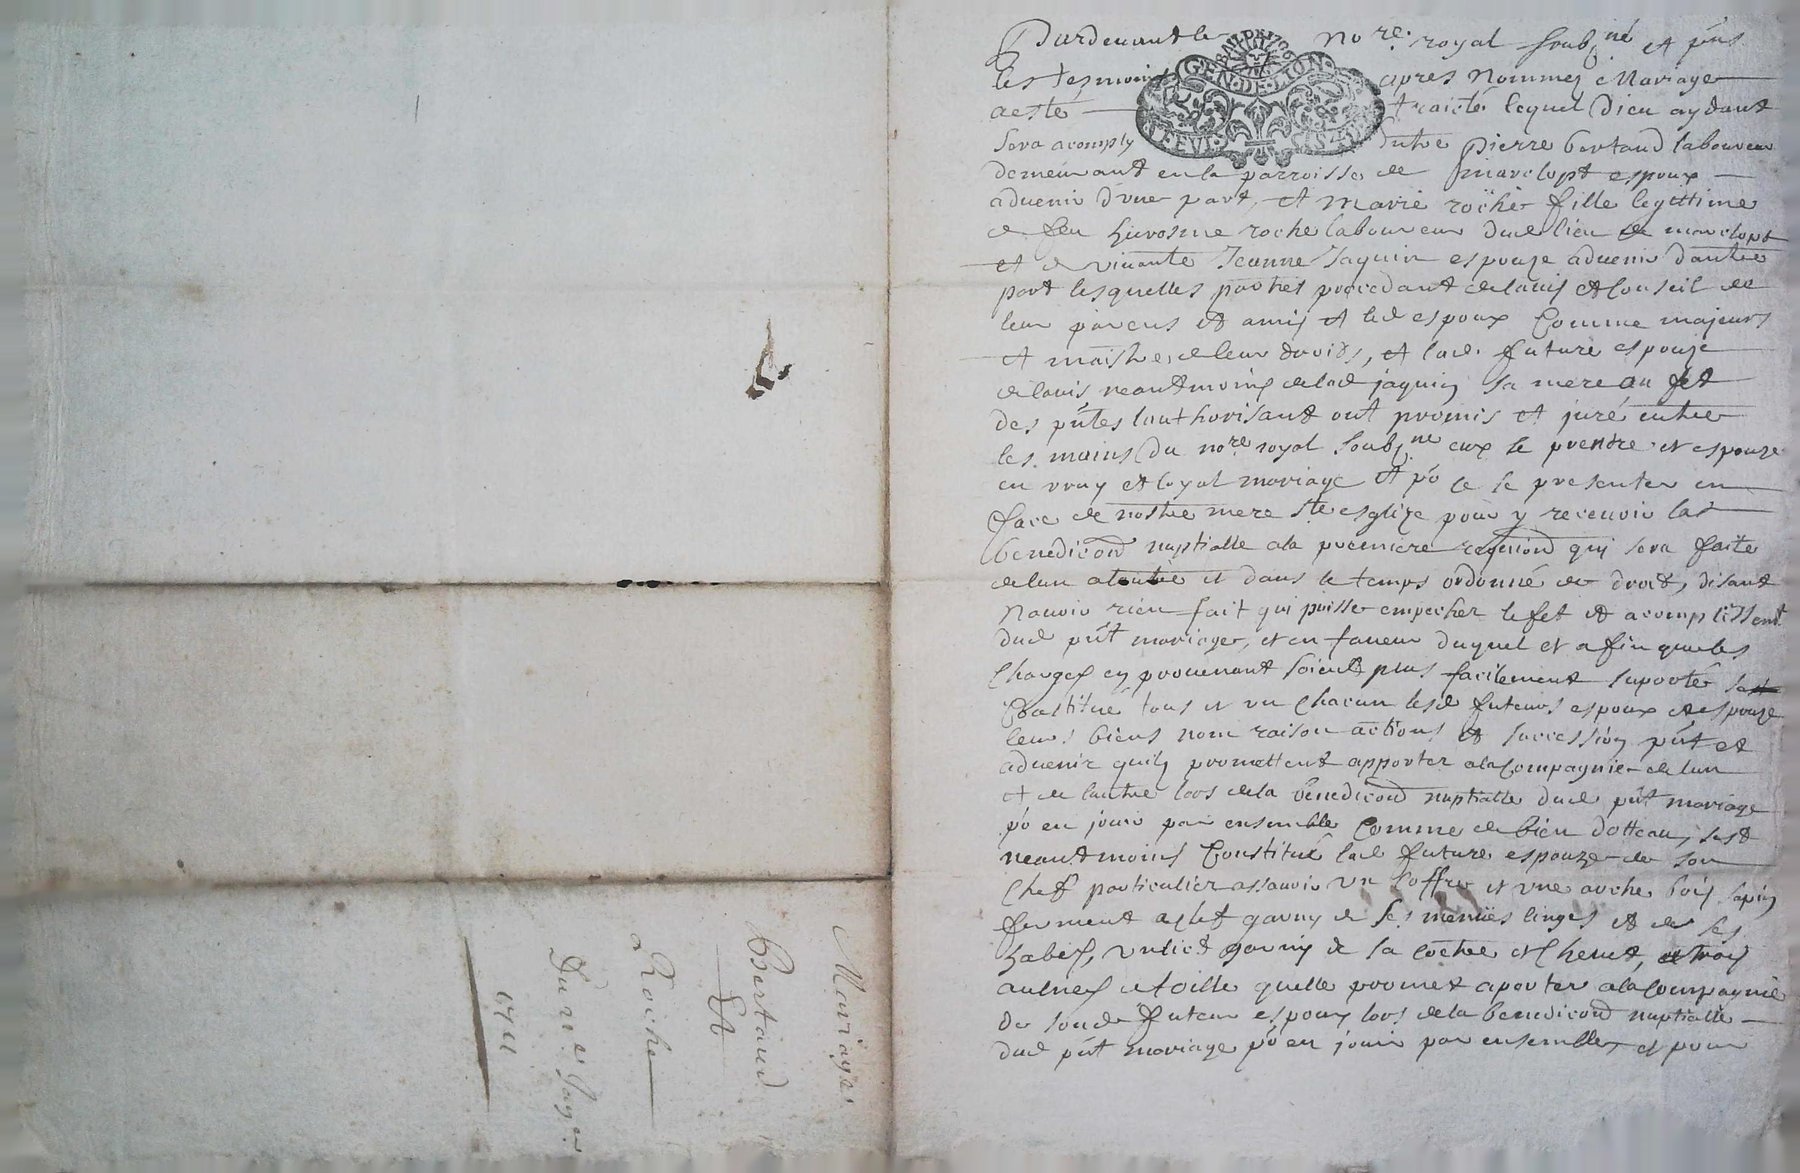 Pardevant le no.re royal soub.né et p̃ns
les tesmoins apres nommez Mariage
a esté traicté lequel Dieu aydant
sera acomply Entre pierre bertaud laboureur
demeurant en la parroisse de marclopt espoux
advenir d'vne part, et marie roche fille legittime
de feu hierosme roche laboureur dud lieu de marclopt
et de vivante Jeanne Jaquin espouze advenir dautre
part lesquelles parties procedant de lavis et Conseil de
leur parens et amis et led espoux Comme majeurs
et maistre de leur droits, et lad. future espouze
de lavis neantmoins de lad jaquin sa mere au fet
des p̃ntes lauthorisant ont promis et juré entre
les mains du no.re royal soub.né eux se prendre et espouze
en vray et loyal mariage et po ce se presenter en
face de nostre mere ste esglize pour y recevoir la
benediction nuptialle a la premiere requisiõn qui sera faite
de lun a lautre et dans le temps ordonné de droit, disant
navoir rien fait qui puisse empecher le fet et acomplissemt
dud p̃nt mariage, et en faveur duquel et afin que les
Charges en provenant soient plus facilement suporté se
Constitué tous et vn Chacun lesd futeurs espoux et espouze
leurs biens nom raison actions et succession p̃nt et
advenir quils promettent apporter a la Compagnie de lun
et de lautre lors de la benediction nuptialle dud p̃nt mariage
po en jouir par ensemble Comme de bien dotteau, sest
neantmoins Constitué lad future espouze de son
Chef particulier assavoir vn Coffre et vne arche bois sapin
fermant a clef garny de ses menües linges et de ses
habis, vn lict garny de sa coetre et Chevet, et trois
aulnes de toille quelle promet aporter a la Compagnie
de sond futeur espoux lors de la benediction nuptialle
dud p̃nt mariage po en jouir par ensemble et pour
GEN·DE·LION
Mariage
Bertaud
Et
Roche
Du ne Jaye
1711